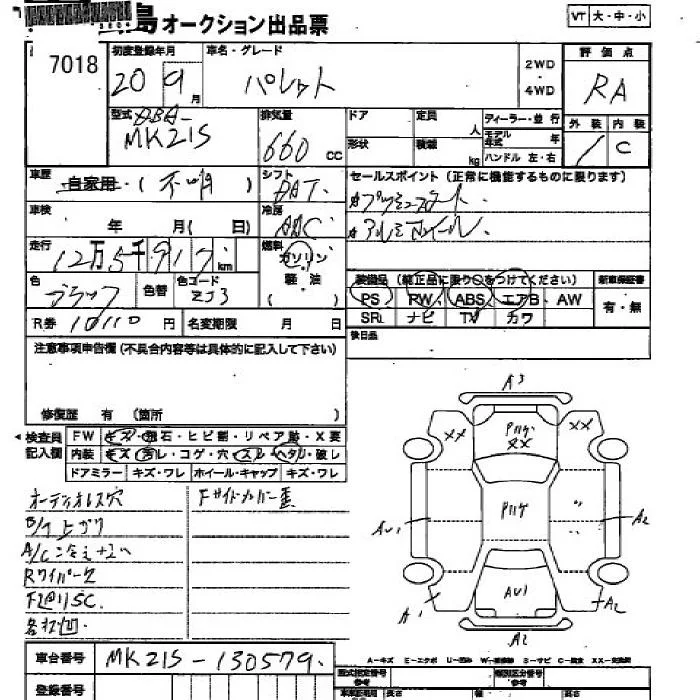 島オークション出品票
VT 大・中・小
7018
初度登録年月
20 9月
車名・グレード
パレット
2WD
・
4WD
評価点
RA
型式
DBA-
MK21S
排気量
660 cc
ドア
定員
人
ディーラー・並行
形状
積載
kg
モデル年式
年
ハンドル 左・右
外装 内装
C
車歴
自家用・(不明)
シフト
セールスポイント(正常に機能するものに限ります)
プッシュスタート
アルミホイール
車検
年 月( 日)
冷房
AAC
走行
12万5千917 km
燃料
ガソリン
軽油
( )
色
ブラック
色替
色コード
ZJ3
装備品(純正品に限り○をつけてください)
新車保証書
PS RW ABS エアB AW
有・無
SR ナビ TV カワ
R券 10110 円
名変期限 月 日
後日品
注意事項申告欄(不具合内容等は具体的に記入して下さい)
修復歴 有 (箇所 )
検査員記入欄
FW キズ・飛石・ヒビ割・リペア跡・X要
内装 キズ・汚レ・コゲ・穴・スレ・ヘタリ・破レ
ドアミラー キズ・ワレ ホイール・キャップ キズ・ワレ
オーディオレス穴
Fサイドカバー歪
A/C冷えナイ
A3
XX
XX
XX
AU1
A2
AU1
A1
A2
A2
A-キズ E-エクボ U-凹み W-補修跡 S-サビ C-腐食 XX-交換済
車台番号 MK21S-130579
登録番号
型式指定番号
参考
類別区分番号
参考
長さ
幅
高さ